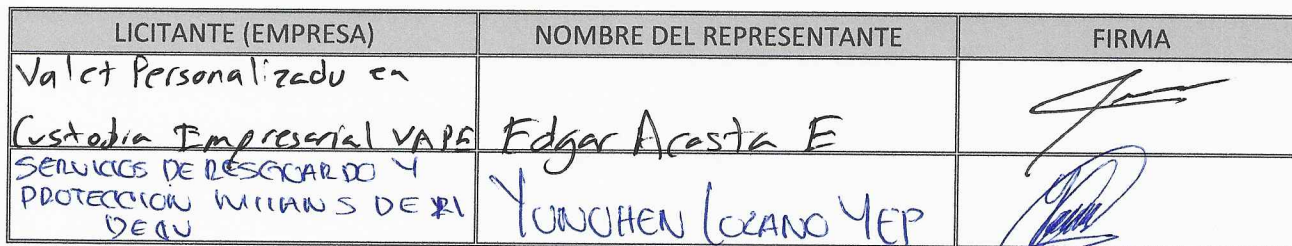 LICITANTE (EMPRESA) NOMBRE DEL REPRESENTANTE FIRMA
Valet Personalizado en
Custodia Empresarial VAPE Edgar Acosta E
SERVICIOS DE RESGUARDO Y
PROTECCION WILLIANS DE RL YUNCHEN LOZANO YEP
DE CV